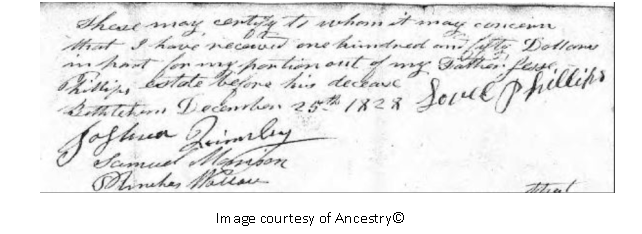 These may certify to whom it may concern
that I have received one hundred and fifty Dollars
in part for my portion out of my Father Jesse
Phillips estate before his decease
Bethlehem December 25th 1828 Lovel Phillips
Joshua Quimby
Samuel
Phinehas Wallace
Image courtesy of Ancestry©